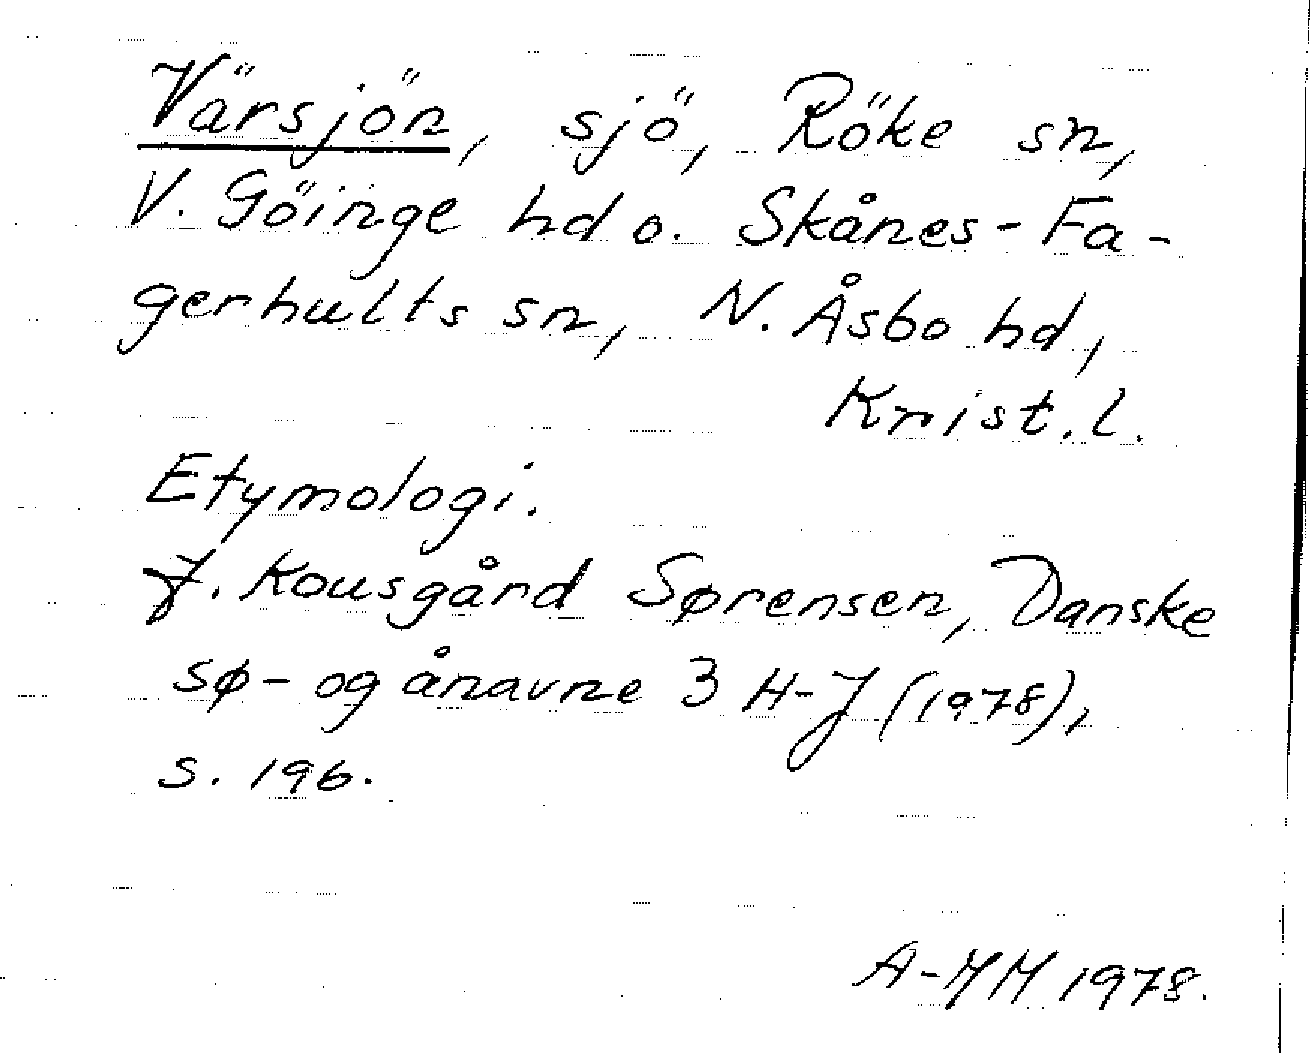 Värsjön, sjö, Röke sn,
V. Göinge hd o. Skånes-Fa-
gerhults sn, N. Åsbo hd,
Krist. l.
Etymologi.
J. Kousgård Sørensen, Danske
sø- og ånavne 3 H-J (1978),
s. 196.
A-MM 1978.